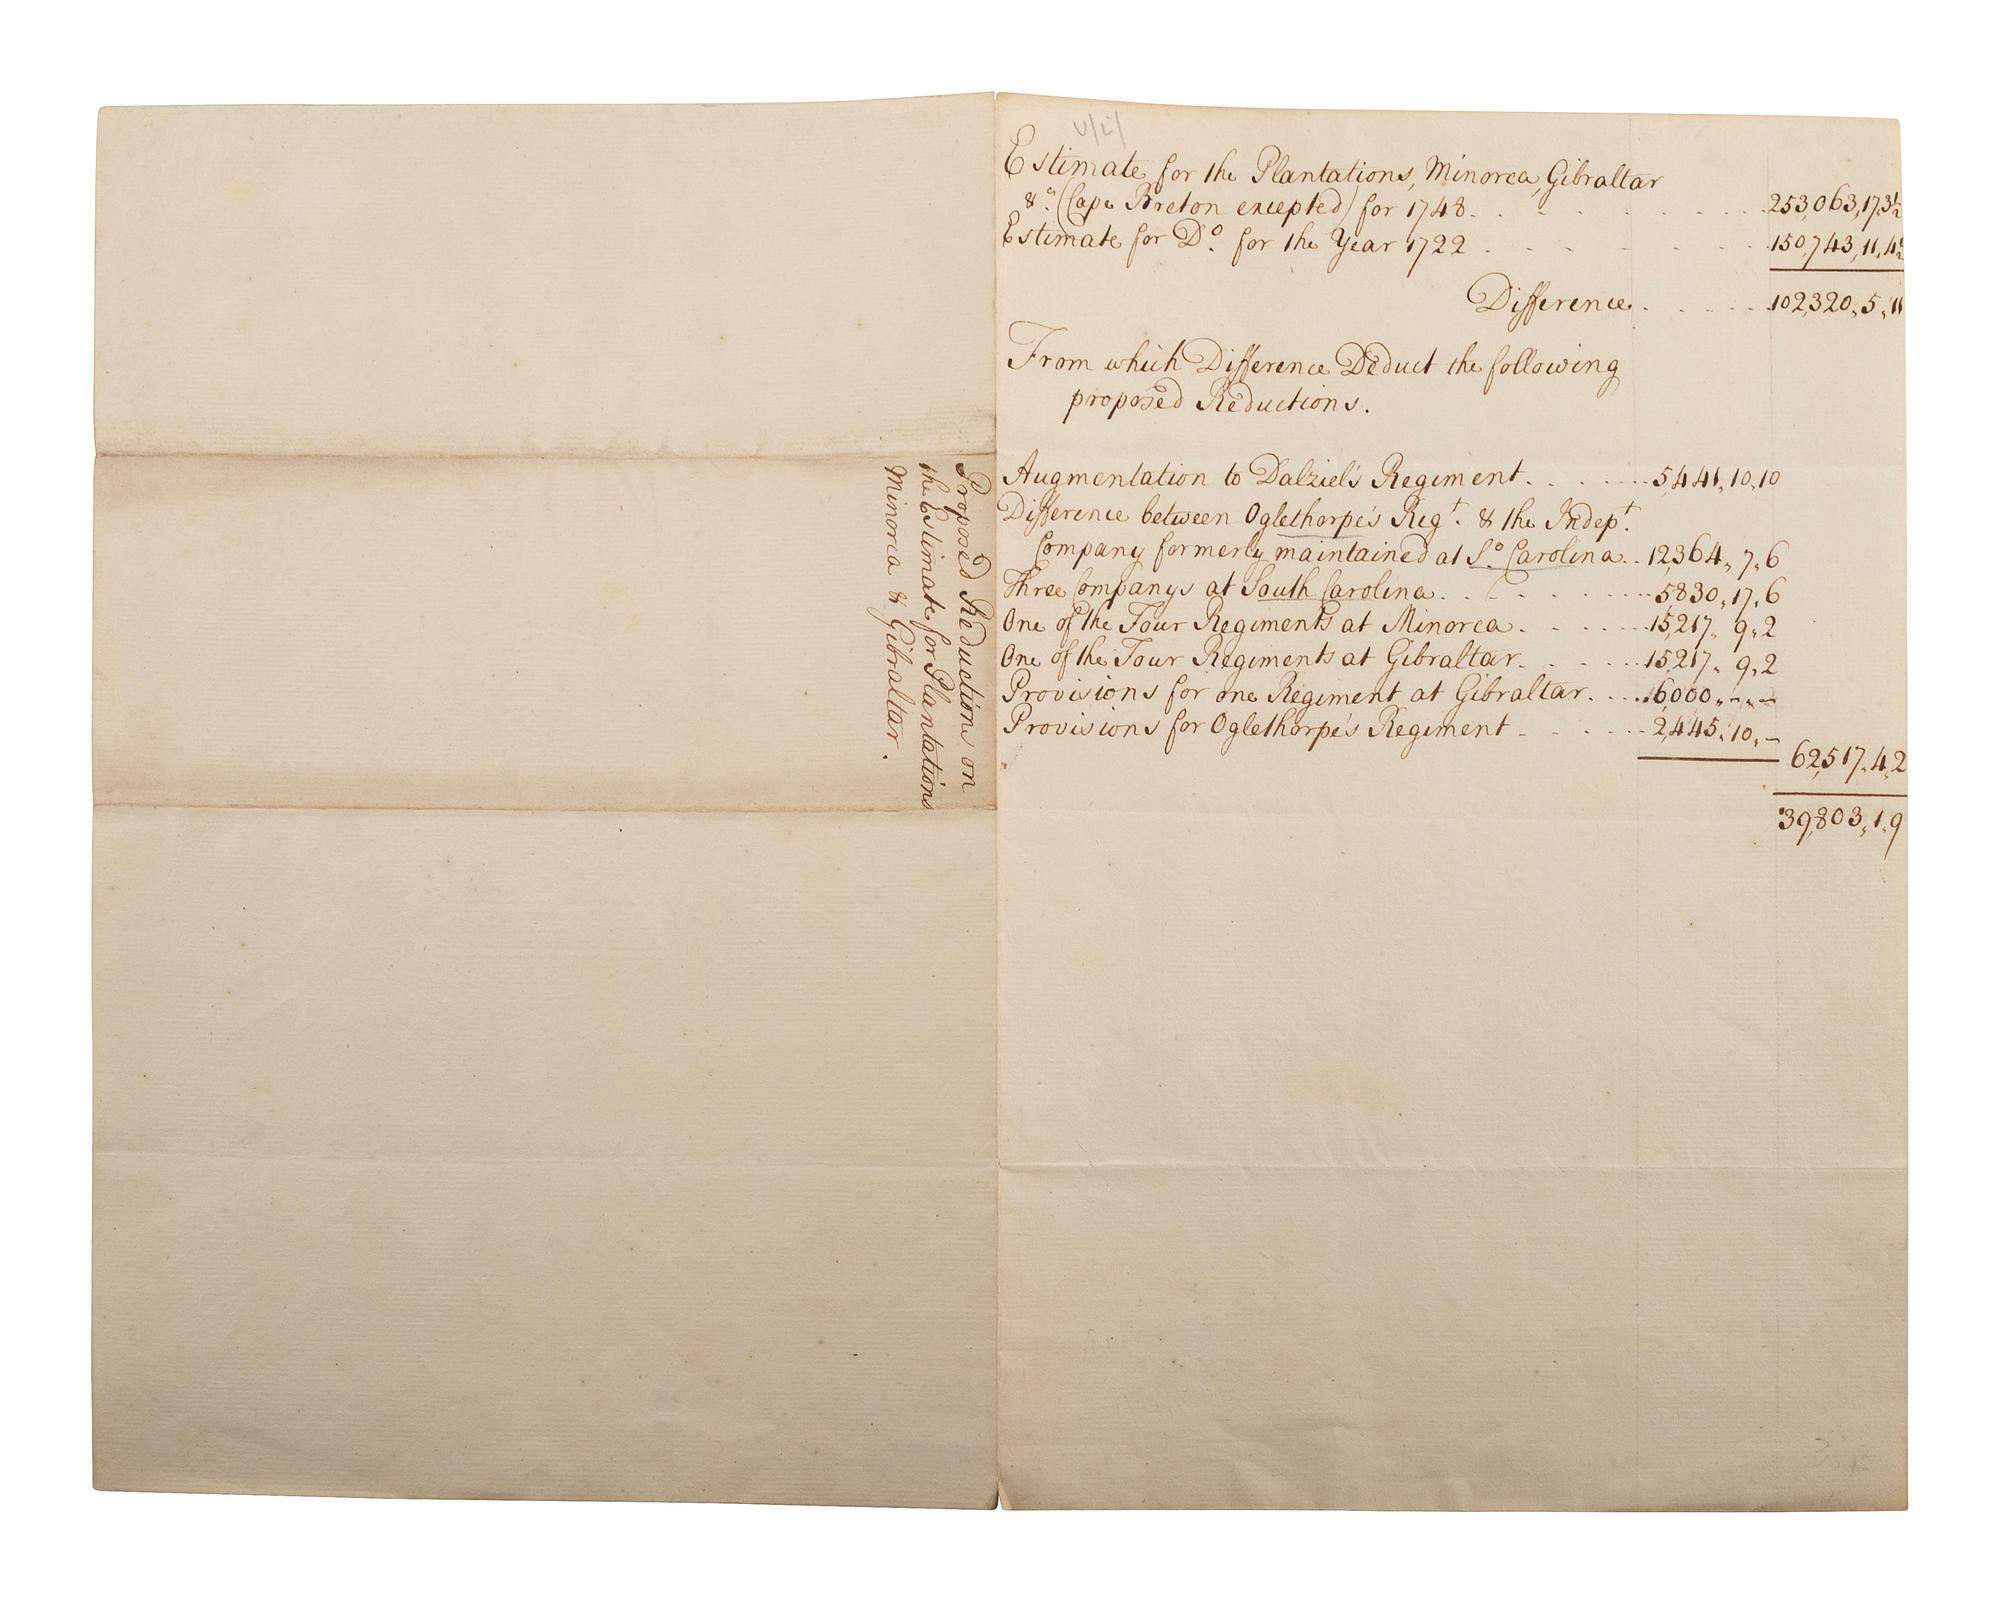 Estimate for the Plantations, Minorca, Gibraltar
&c. (Cape Breton excepted) for 1748 . . . . . . . . 253,063,,17,,3½
Estimate for Do. for the Year 1722 . . . . . . . 150,743,,11,,4½
Difference . . . . . 102,320,,5,,11
From which Difference Deduct the following
proposed Reductions.
Augmentation to Dalziel's Regiment . . . . . 5,441,,10,,10
Difference between Oglethorpe's Regt. & the Indept.
Company formerly maintained at So. Carolina . . 12,364,,7,,6
Three Companys at South Carolina . . . . . . 5830,,17,,6
One of the Four Regiments at Minorca . . . . . 15,217,,9,,2
One of the Four Regiments at Gibraltar . . . . . 15,217,,9,,2
Provisions for one Regiment at Gibraltar . . . . 6000,,–,,–
Provisions for Oglethorpe's Regiment . . . . . 2,445,,10,,–
62,517,,4,,2
39,803,,1,,9
Proposed Reductions on
the Estimate for Plantations
Minorca & Gibraltar.